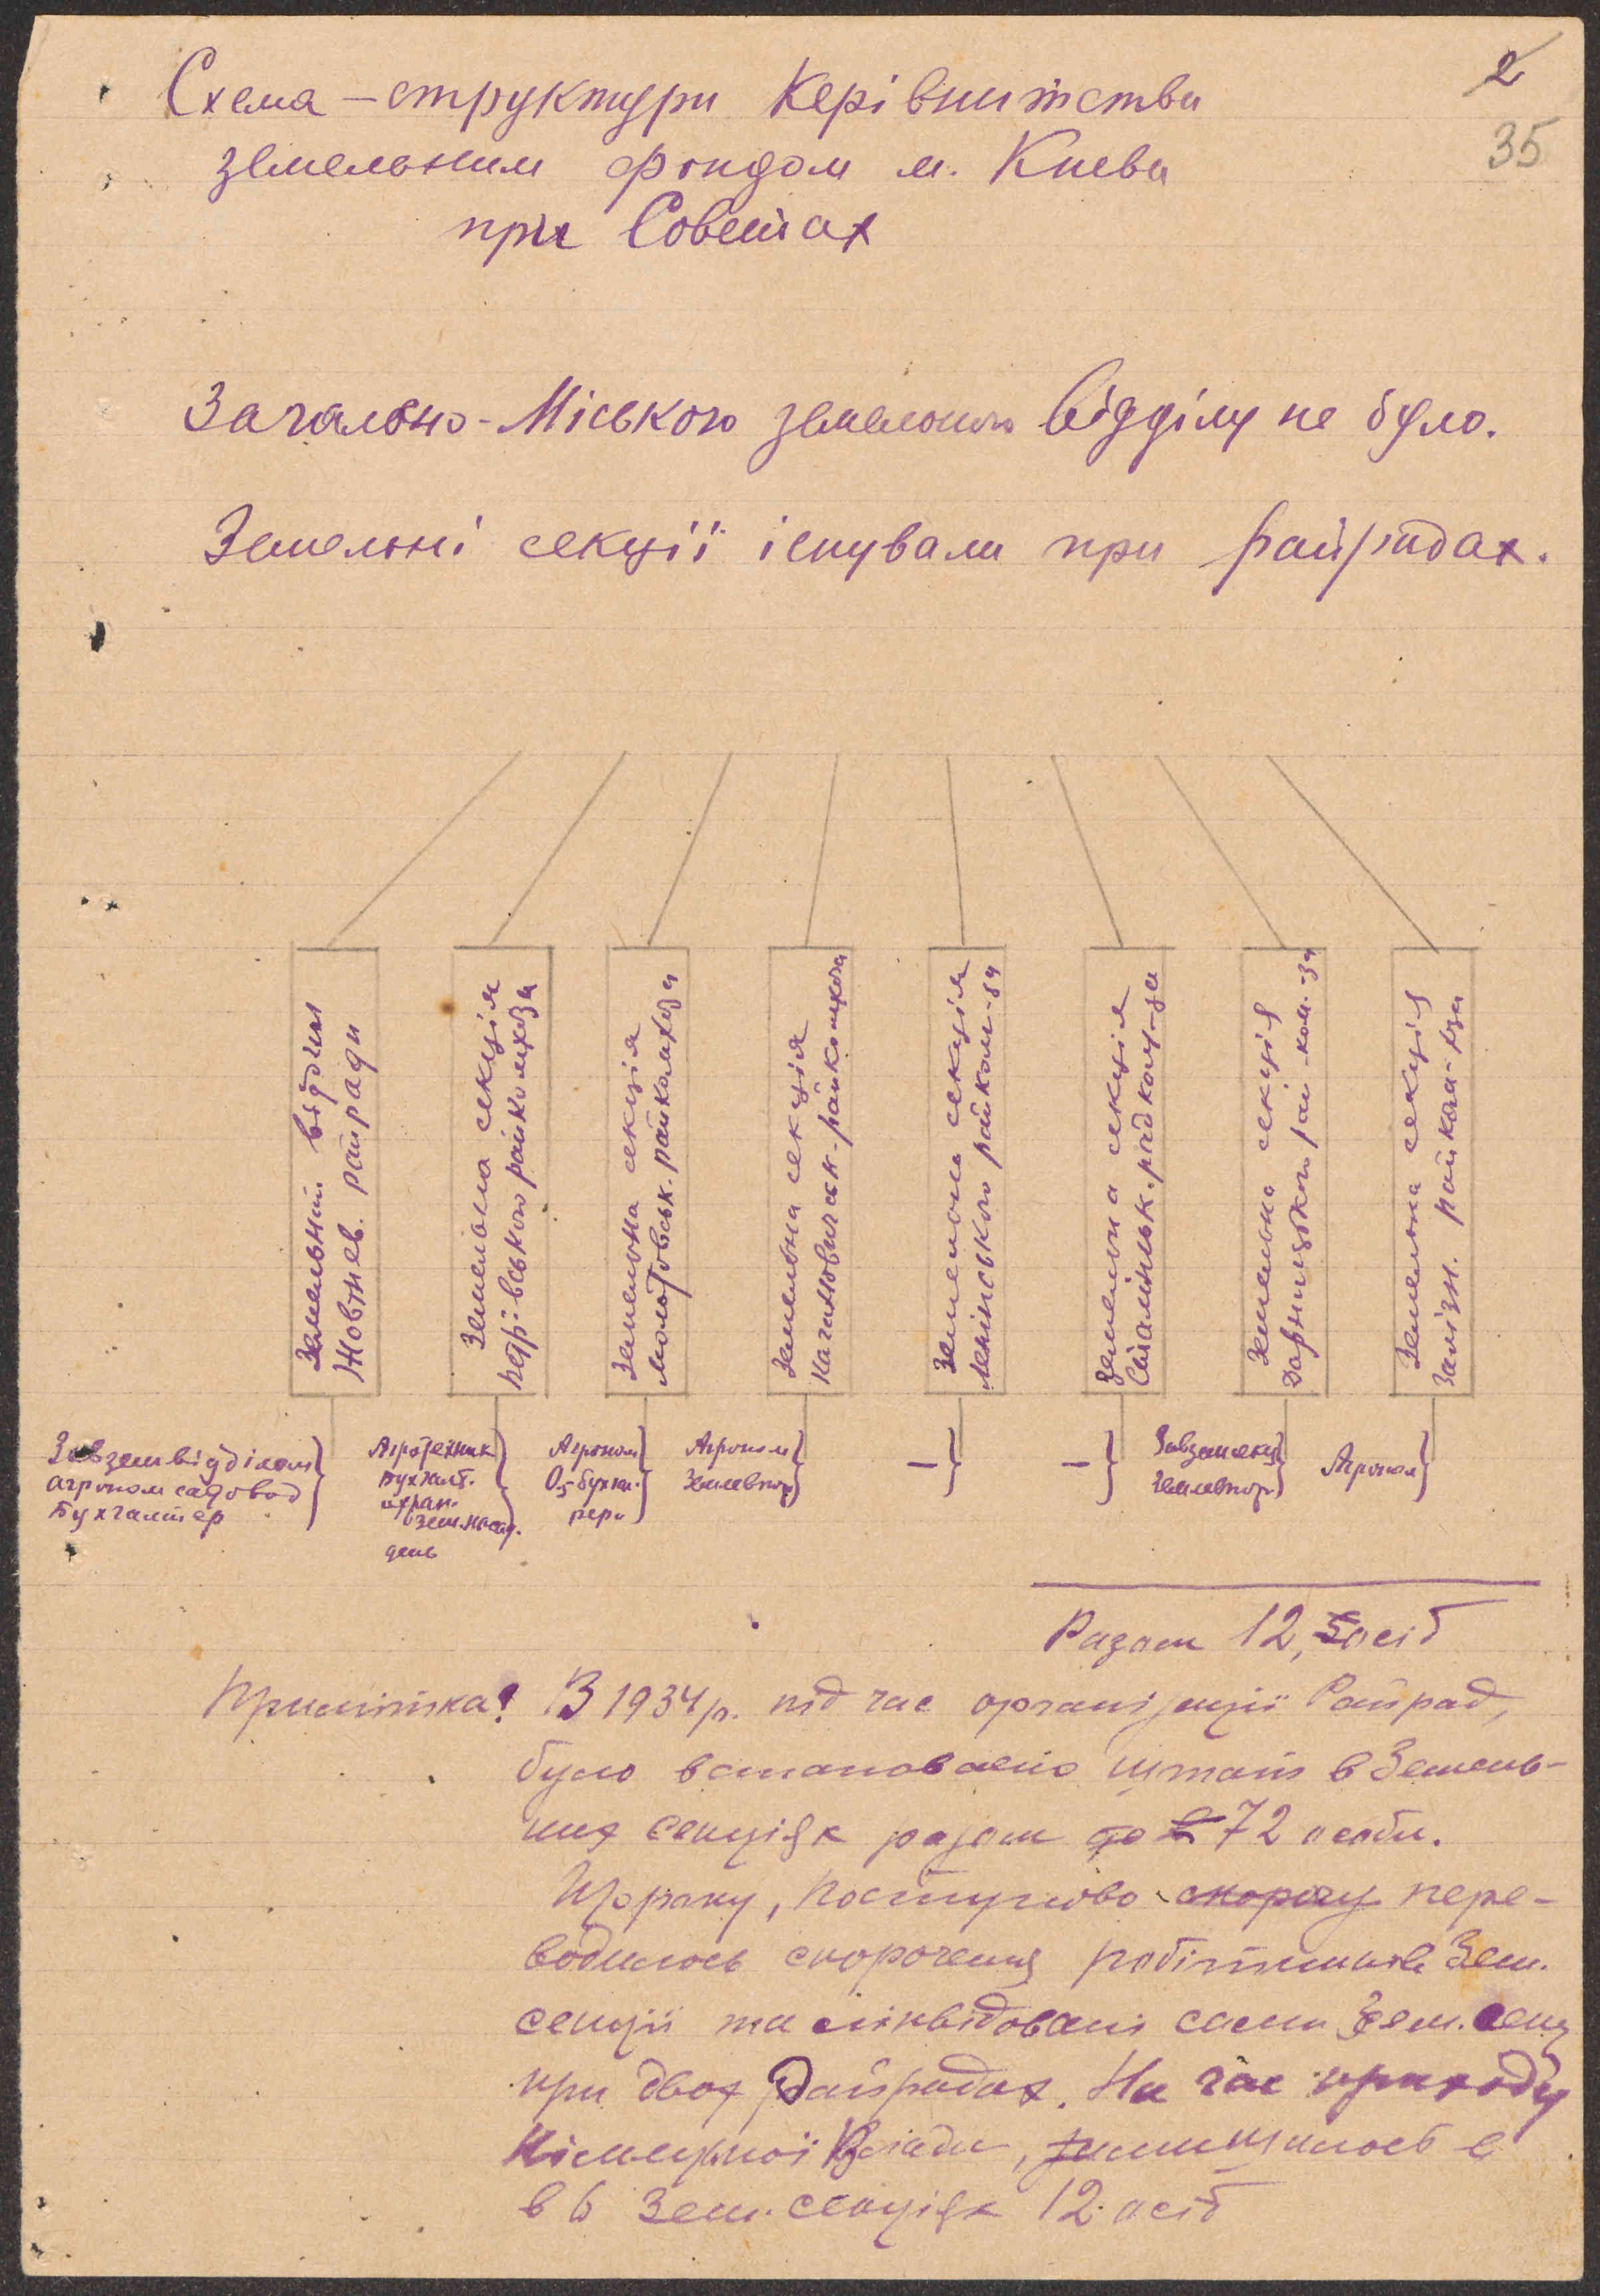 2
35
Схема – структури Керівництва
земельним фондом м. Києва
при Советах
Загально-Міського земельного відділу не було.
Земельні секції існували при райрадах.
Земельний відділ
Жовтнев. райради
Земельна секція
Петрівського райкомхоза
Земельна секція
Молотовськ. райкомхоза
Земельна секція
Кагановичськ. райкомхоза
Земельна секція
Ленінського райком-за
Земельна секція
Сталінськ. райкому-за
Земельна секція
Дарницького рай-ком.-за
Земельна секція
Залізн. райком-хоза
Завземвідділом
агроном садовод
Бухгалтер
Агротехник
Бухгалт.
охран.
зем. насад.
день
Агроном
0,5 бухгал.
тера
Агроном
Землевпор.
–
–
Завземсекц
Землевпор.
Агроном
Разом 12,5 осіб
Примітка: В 1934 р. під час організації Райрад,
було встановлено штат в Земель-
них секціях разом до 72 особи.
Щороку, поступово скороч пере-
водилось скорочення робітників Зем.
секції та ліквідовані самі Зем. секц
при двох Райрадах. На час приходу
Німецької Влади, залишилось в
в 6 Зем. секціях 12 осіб